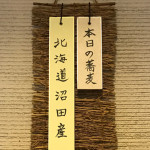 本日の蕎麦
北海道沼田産